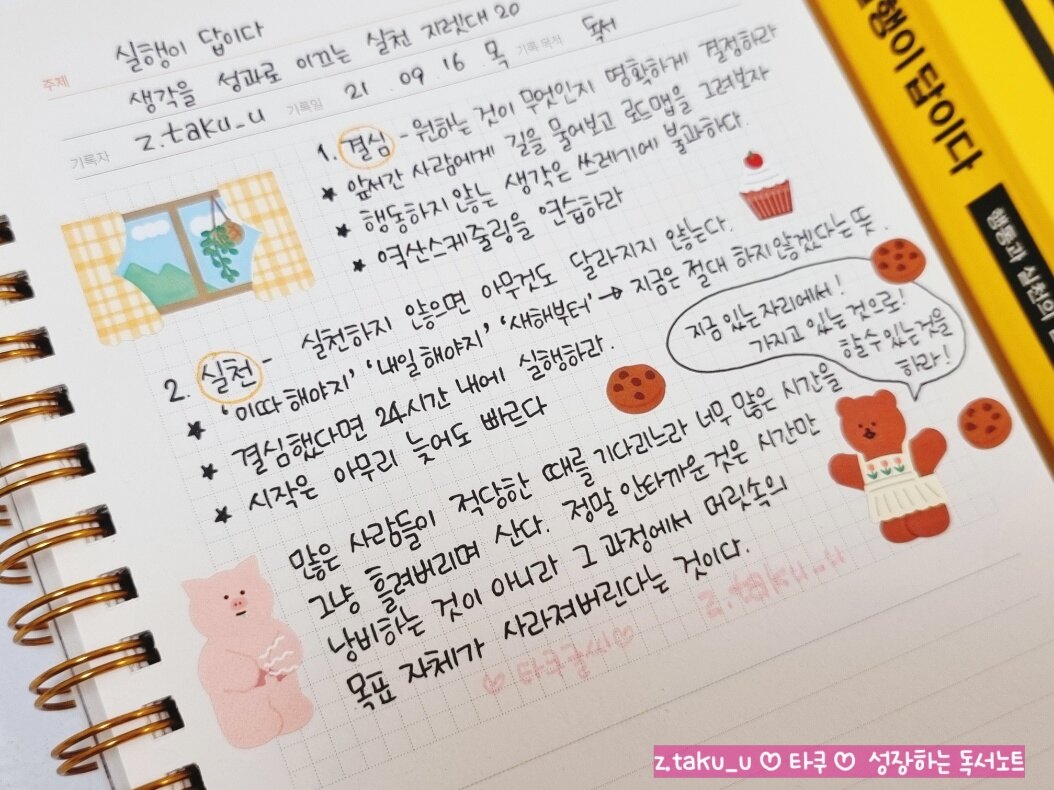 주제 실행이 답이다
생각을 성과로 이끄는 실천 지렛대 20
기록자 z.taku_u 기록일 21.09.16 목 기록 목적 독서
1. 결심 - 원하는 것이 무엇인지 명확하게 결정하라
★ 앞서간 사람에게 길을 물어보고 로드맵을 그려보자
★ 행동하지 않는 생각은 쓰레기에 불과하다.
★ 역산스케줄링을 연습하라
2. 실천 - 실천하지 않으면 아무건도 달라지지 않는다.
★ '이따 해야지' '내일 해야지' '새해부터' → 지금은 절대 하지않겠다는 뜻.
★ 결심했다면 24시간 내에 실행하라.
★ 시작은 아무리 늦어도 빠르다
지금 있는 자리에서!
가지고 있는 것으로!
할수 있는 것을
하라!
많은 사람들이 적당한 때를 기다리느라 너무 많은 시간을
그냥 흘려버리며 산다. 정말 안타까운 것은 시간만
낭비하는 것이 아니라 그 과정에서 머릿속의
목표 자체가 사라져버린다는 것이다.
♡ 타쿠글씨 ♡
행이 답이다
행동과 실천의
z.taku_u ♡ 타쿠 ♡ 성장하는 독서노트